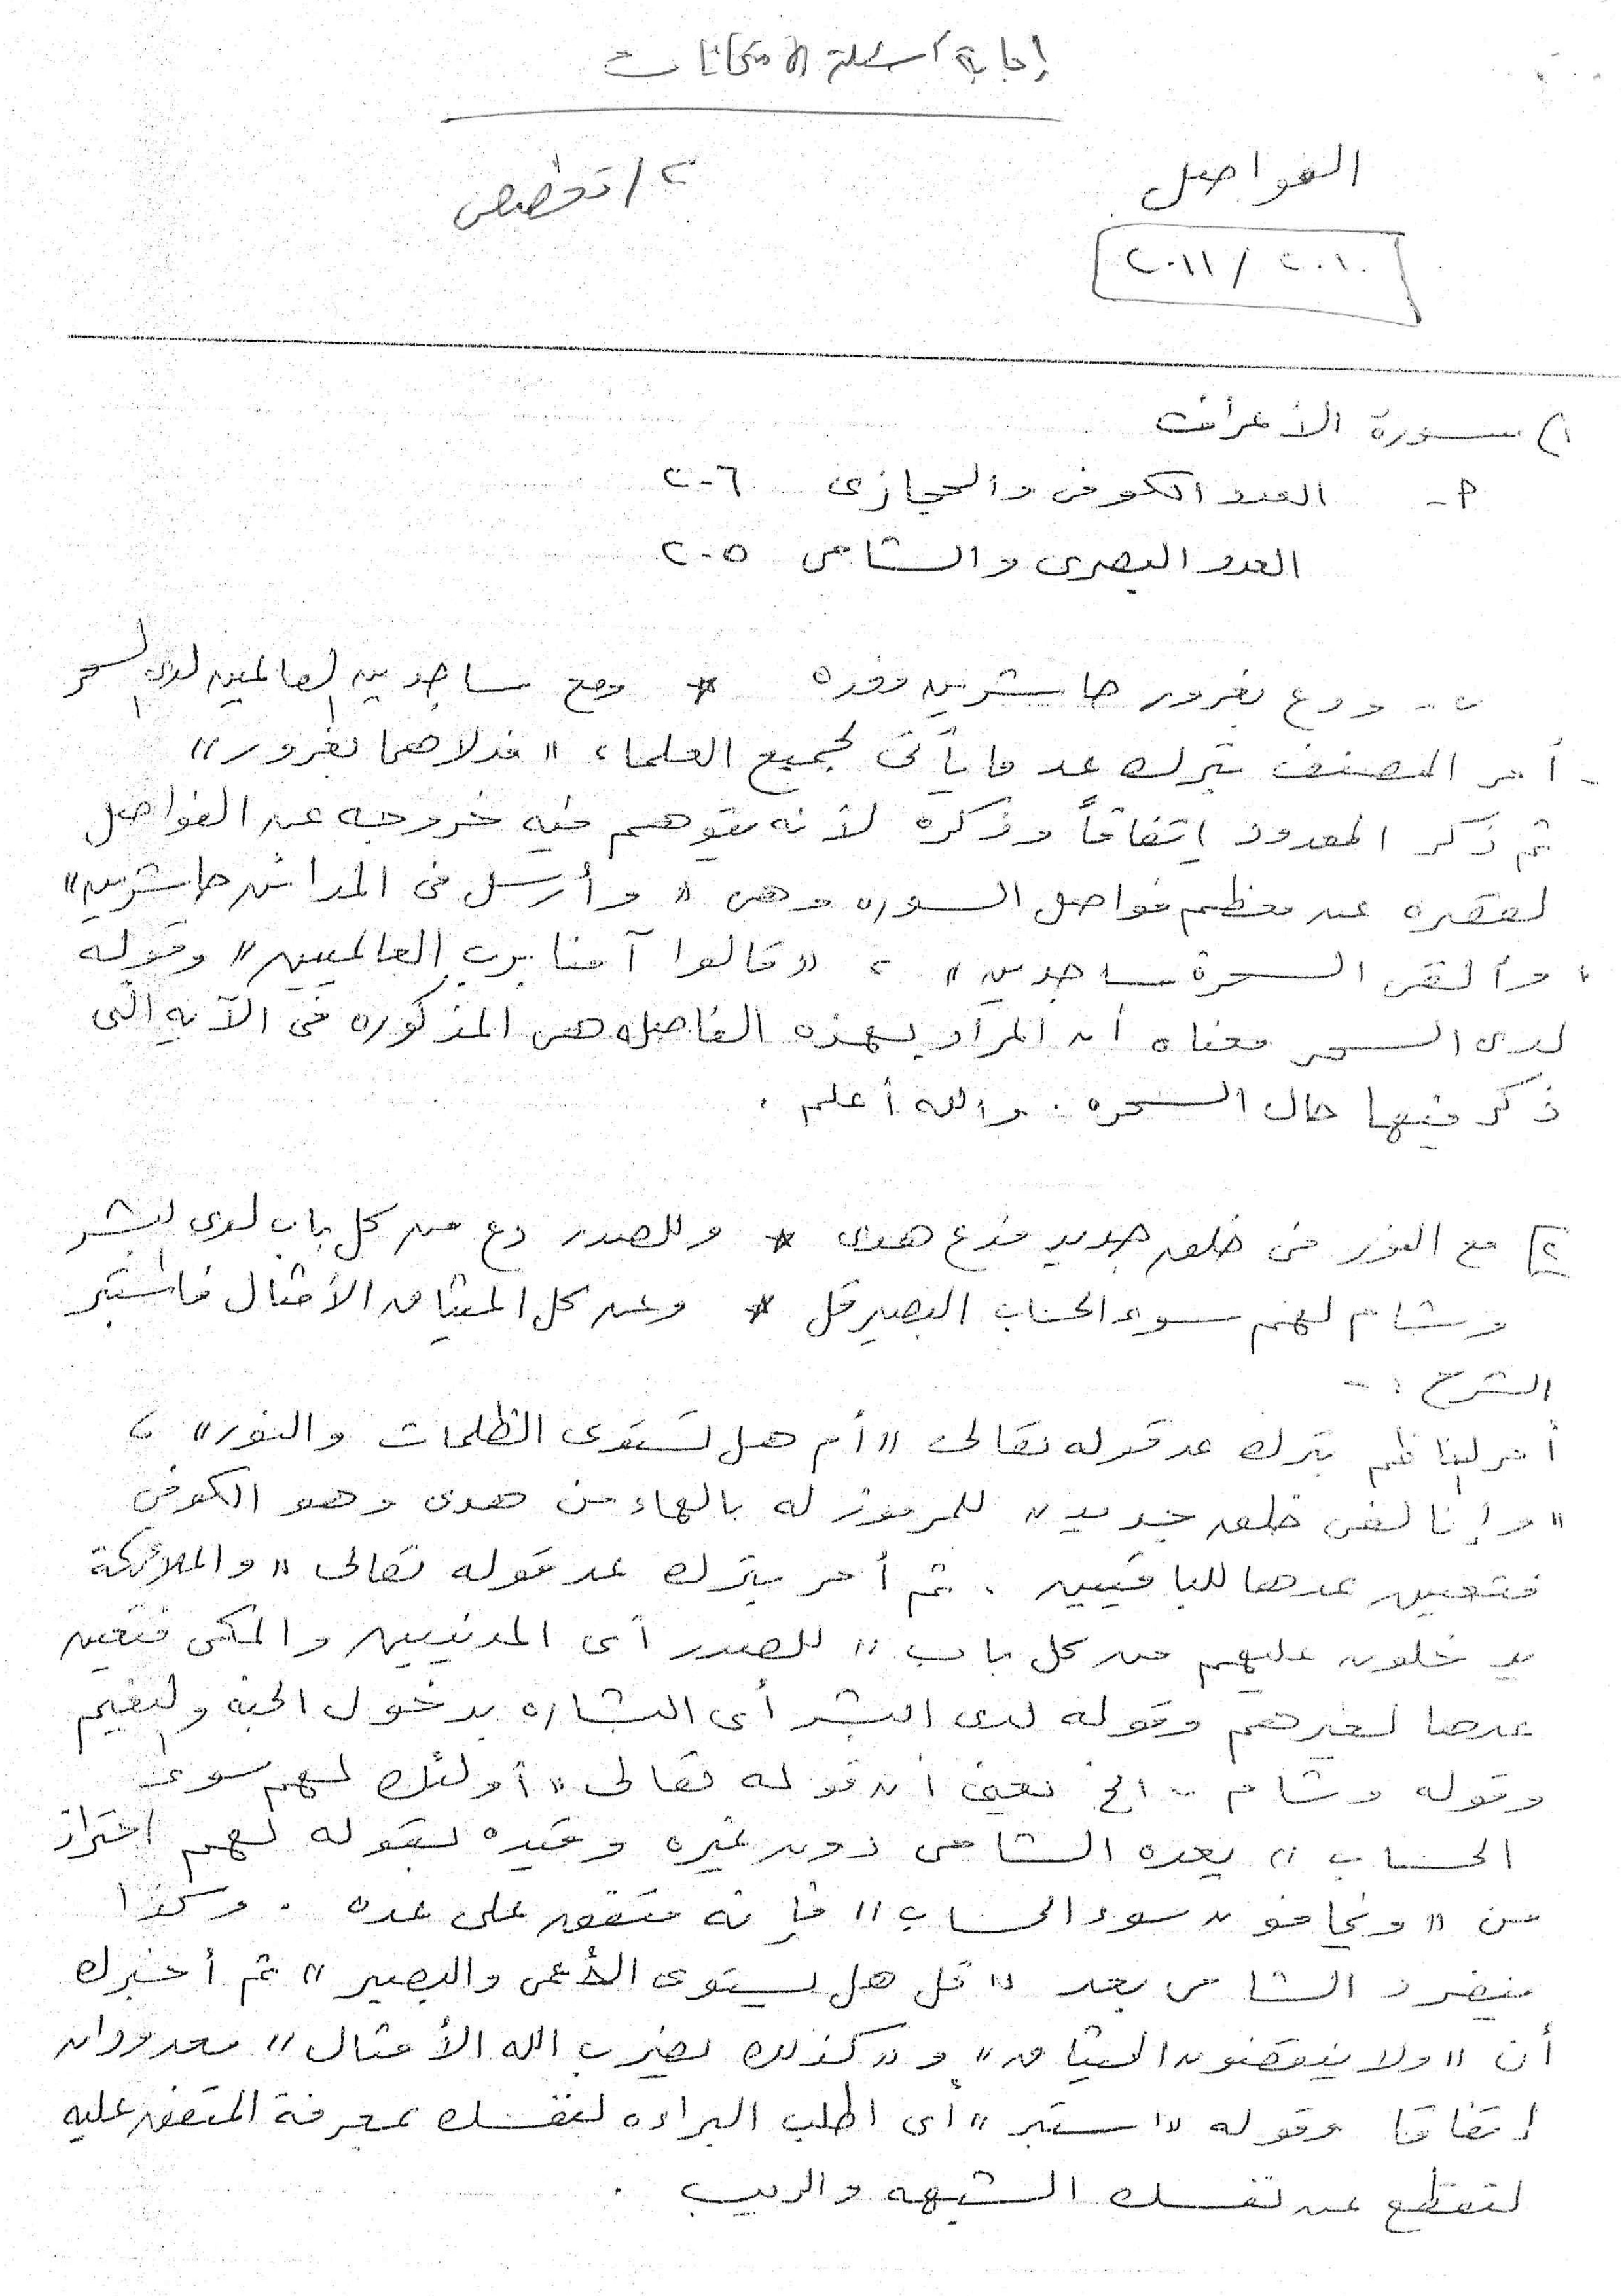 إجابة أسئلة الامتحانات
الفواصل
٢/تخصص
٢٠١٠ / ٢٠١١
١) سورة الأعراف
أ- العدد الكوفى والحجازى ٢٠٦
العدد البصرى والشامى ٢٠٥
ب - ودع بغرور حاشرين فعده * ومع ساجدين العالمين لدى السحر
- أمر المصنف بترك عد ما يأتى لجميع العلماء "فدلاهما بغرور"
ثم ذكر المعدود إتفاقاً وذكره لأنه يتوهم فيه خروجه عن الفواصل
لقصره عن معظم فواصل السوره وهى "وأرسل فى المدائن حاشرين"
، "وألقى السحرة ساجدين" ، "قالوا آمنا برب العالمين" وقوله
لدى السحر معناه أن المراد بهذه الفاصله هى المذكوره فى الآيه التى
ذكر فيها حال السحره . والله أعلم .
٢) مع النور فى خلق جديد فدع هدى * وللصدر دع من كل باب لدى البشر
وشام لهم سوء الحساب البصير قل * وعن كل الميثاق الأمثال فاستبر
الشرح : -
أمر الناظم بترك عد قوله تعالى "أم هل تستوى الظلمات والنور" ،
"وإنا لفى خلق جديد" للمرموز له بالهاء من هدى وهو الكوفى
فتعين عدها للباقيين . ثم أمر بترك عد قوله تعالى "والملائكة
يدخلون عليهم من كل باب" للصدر أى المدنيين والمكى فتعين
عدها لغيرهم وقوله لدى البشر أى البشاره بدخول الجنه والنعيم
وقوله وشام .. الخ يعنى أن قوله تعالى "أولئك لهم سوء
الحساب" يعده الشامى دون غيره وقيده بقوله لهم احترازا
من "ويخافون سوء الحساب" فإنه متفق على عده . وكذا
ينفرد الشامى بعد "قل هل يستوى الأعمى والبصير" ثم أخبرك
أن "ولا ينقضون الميثاق" و "كذلك يضرب الله الأمثال" معدودان
إتفاقا وقوله "استبر" أى اطلب البراءه لنفسك بمعرفة المتفق عليه
لتقطع عن نفسك الشبهه والريب .